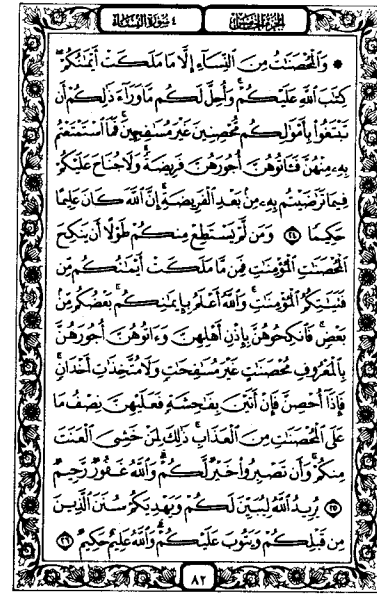 الجزء الخامس
٤ سورة النساء
۞ وَالْمُحْصَنَٰتُ مِنَ النِّسَآءِ إِلَّا مَا مَلَكَتْ أَيْمَٰنُكُمْ ۖ
كِتَٰبَ اللَّهِ عَلَيْكُمْ ۚ وَأُحِلَّ لَكُم مَّا وَرَآءَ ذَٰلِكُمْ أَن
تَبْتَغُوا۟ بِأَمْوَٰلِكُم مُّحْصِنِينَ غَيْرَ مُسَٰفِحِينَ ۚ فَمَا اسْتَمْتَعْتُم
بِهِۦ مِنْهُنَّ فَـَٔاتُوهُنَّ أُجُورَهُنَّ فَرِيضَةً ۚ وَلَا جُنَاحَ عَلَيْكُمْ
فِيمَا تَرَٰضَيْتُم بِهِۦ مِنۢ بَعْدِ الْفَرِيضَةِ ۚ إِنَّ اللَّهَ كَانَ عَلِيمًا
حَكِيمًا ٢٤ وَمَن لَّمْ يَسْتَطِعْ مِنكُمْ طَوْلًا أَن يَنكِحَ
الْمُحْصَنَٰتِ الْمُؤْمِنَٰتِ فَمِن مَّا مَلَكَتْ أَيْمَٰنُكُم مِّن
فَتَيَٰتِكُمُ الْمُؤْمِنَٰتِ ۚ وَاللَّهُ أَعْلَمُ بِإِيمَٰنِكُم ۚ بَعْضُكُم مِّنۢ
بَعْضٍ ۚ فَانكِحُوهُنَّ بِإِذْنِ أَهْلِهِنَّ وَءَاتُوهُنَّ أُجُورَهُنَّ
بِالْمَعْرُوفِ مُحْصَنَٰتٍ غَيْرَ مُسَٰفِحَٰتٍ وَلَا مُتَّخِذَٰتِ أَخْدَانٍ ۚ
فَإِذَآ أُحْصِنَّ فَإِنْ أَتَيْنَ بِفَٰحِشَةٍ فَعَلَيْهِنَّ نِصْفُ مَا
عَلَى الْمُحْصَنَٰتِ مِنَ الْعَذَابِ ۚ ذَٰلِكَ لِمَنْ خَشِىَ الْعَنَتَ
مِنكُمْ ۚ وَأَن تَصْبِرُوا۟ خَيْرٌ لَّكُمْ ۗ وَاللَّهُ غَفُورٌ رَّحِيمٌ
٢٥ يُرِيدُ اللَّهُ لِيُبَيِّنَ لَكُمْ وَيَهْدِيَكُمْ سُنَنَ الَّذِينَ
مِن قَبْلِكُمْ وَيَتُوبَ عَلَيْكُمْ ۗ وَاللَّهُ عَلِيمٌ حَكِيمٌ ٢٦
٨٢